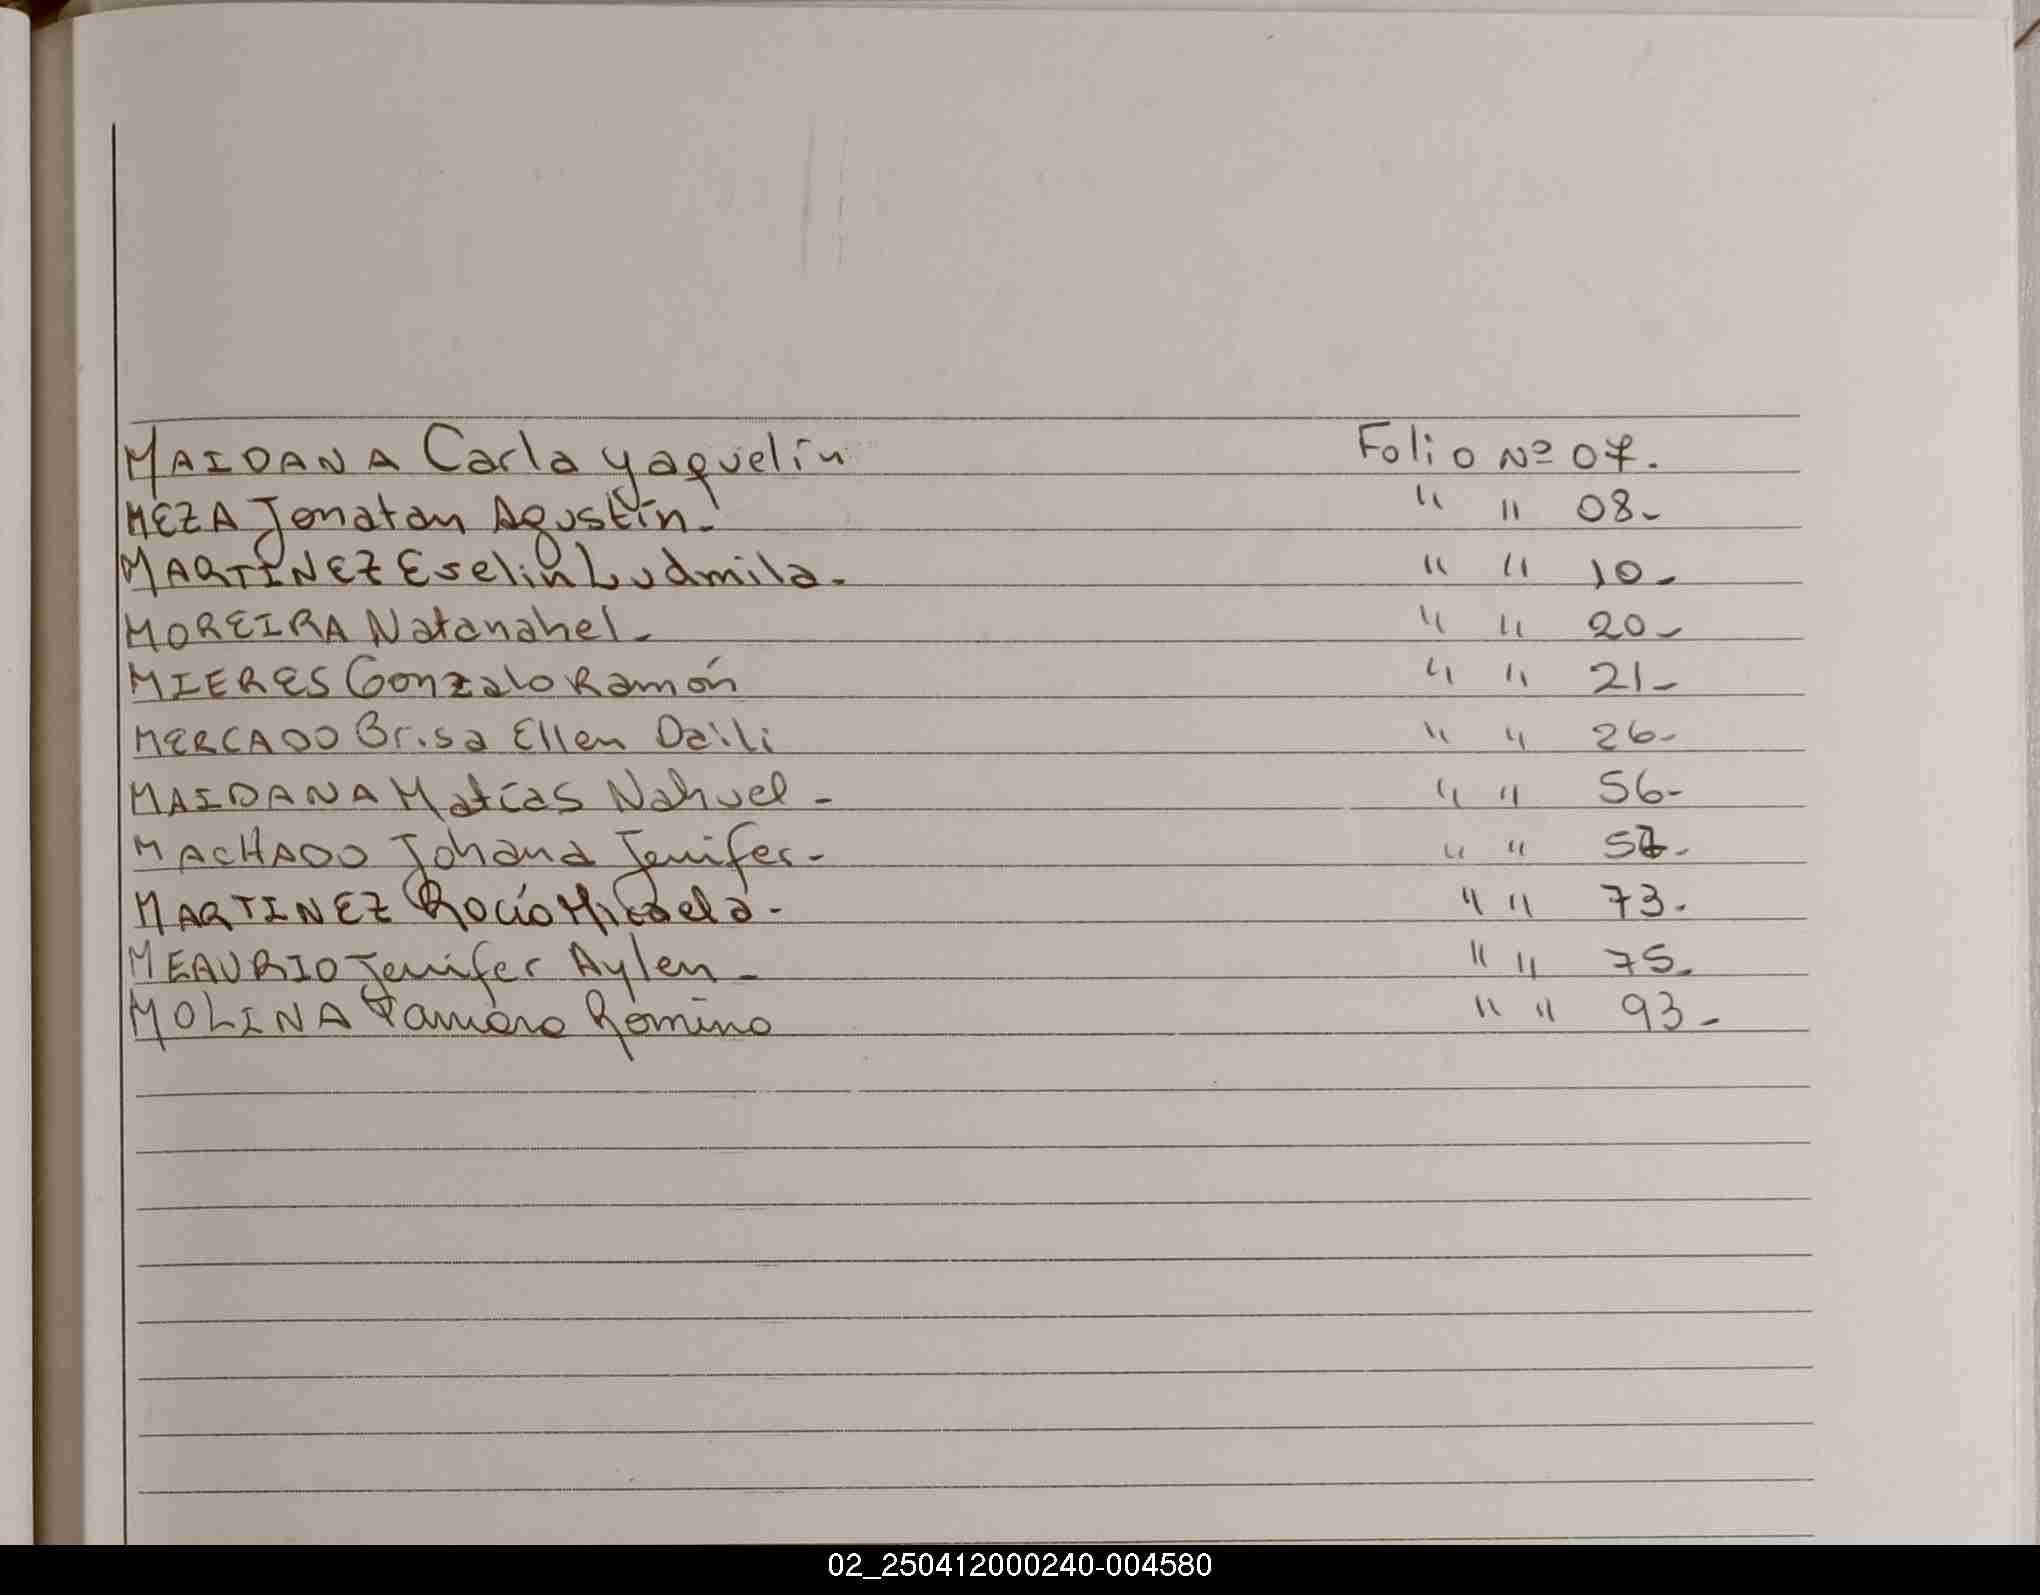 MAIDANA Carla Yaquelin Folio Nº 07.
MEZA Jonatan Agustín. " " 08-
MARTINEZ Eselin Ludmila. " " 10-
MOREIRA Natanahel- " " 20-
MIERES Gonzalo Ramón " " 21-
MERCADO Brisa Ellen Daili " " 26-
MAIDANA Matías Nahuel - " " 56-
MACHADO Johana Jenifer- " "
MARTINEZ Rocío Micaela- " " 73.
MEAURIO Jenifer Aylen - " " 75.
MOLINA Tamara Romina " " 93-
02_250412000240-004580